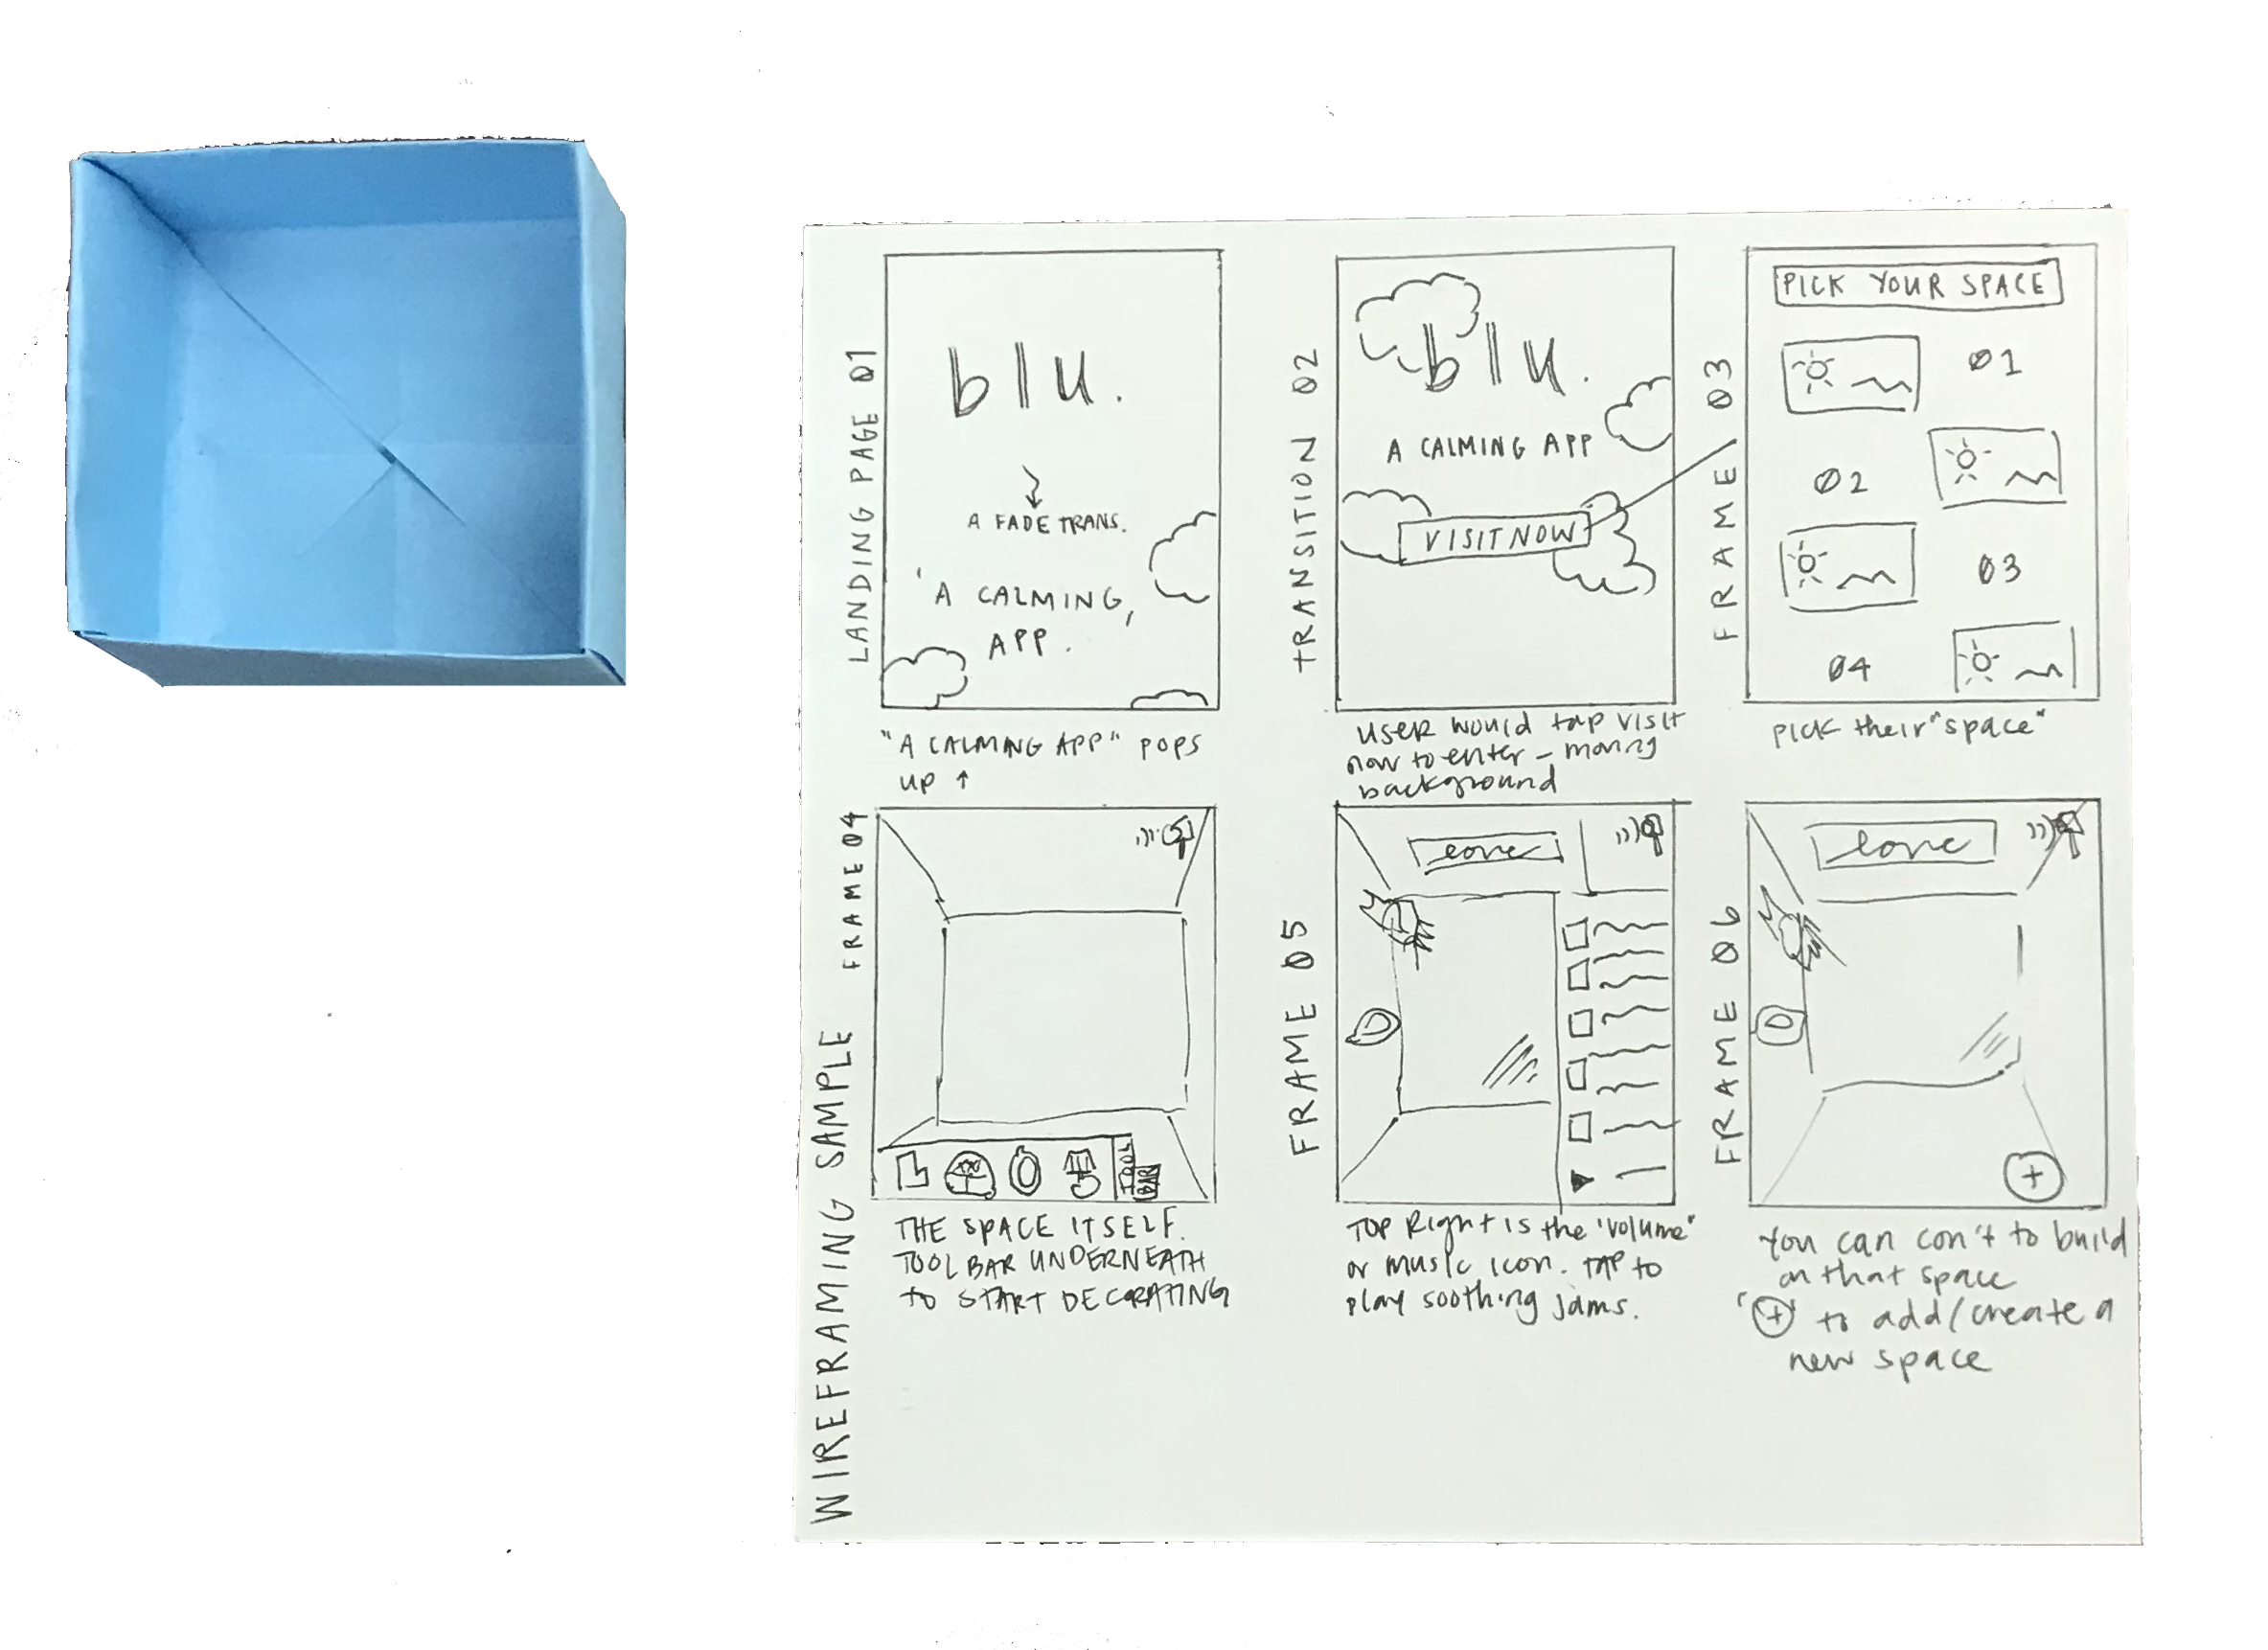 WIREFRAMING SAMPLE
LANDING PAGE 01
blu.
A FADE TRANS.
'A CALMING,
APP.
"A CALMING APP" POPS
UP ↑
TRANSITION 02
blu.
A CALMING APP
VISIT NOW
USER would tap visit
now to enter – moving
background
FRAME 03
PICK YOUR SPACE
01
02
03
04
PICK their "space"
FRAME 04
TOOL
BAR
THE SPACE ITSELF.
TOOLBAR UNDERNEATH
to START DECORATING
FRAME 05
TOP Right is the "volume"
or music icon. TAP to
play soothing jams.
FRAME 06
love
You can con't to build
on that space
"+" to add/create a
new space